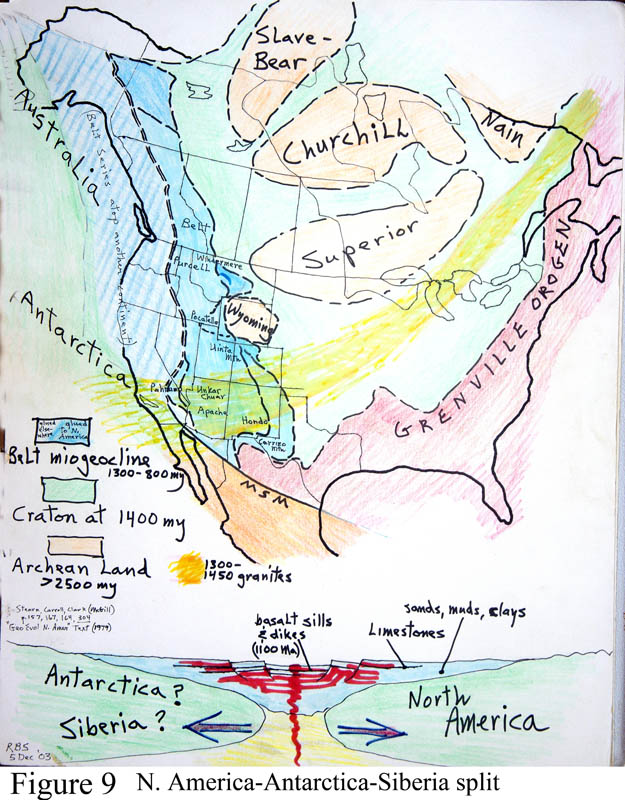 Slave-
Bear
Churchill
Nain
Australia
Belt Series atop another continent
Superior
Belt
Windermere
Purcell
Wyoming
Pocatello
Uinta
Mtn.
Antarctica
GRENVILLE OROGEN
Pahrump
Unkar
Chuar
Apache
Hondo
Carrizo
Mtn.
MSM
glued
else-
where
glued
to N.
America
Belt miogeocline
1300-800my
Craton at 1400 my
Archean Land
>2500 my
1300-
1450 granites
Stearn, Carroll, Clark
p.157, 167, 169, 304
"Geo Evol N. Amer" Text (1979)
basalt sills
& dikes
(1100 Ma)
Limestones
sands, muds, clays
Antarctica?
Siberia?
North
America
RBS
5 Dec '03
Figure 9 N. America-Antarctica-Siberia split